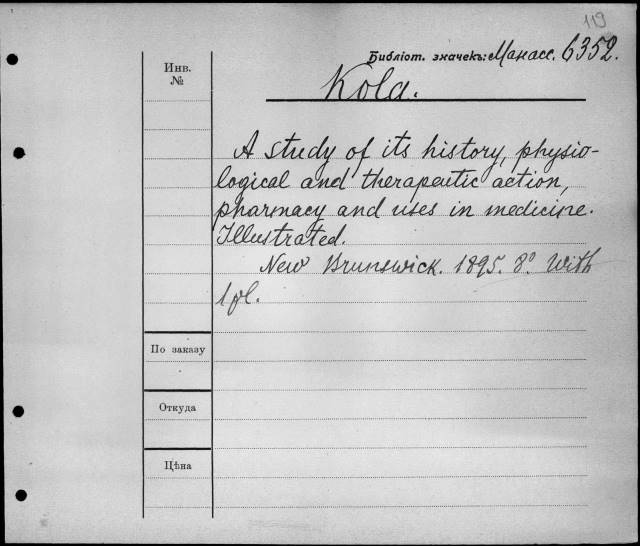 119
Библіот. значекъ: Манасс. 6352.
Инв.
№
Kola.
A study of its history, physio-
logical and therapeutic action,
pharmacy and uses in medicine.
Illustrated.
New Brunswick. 1895. 8° With
1 pl.
По заказу
Откуда
Цѣна